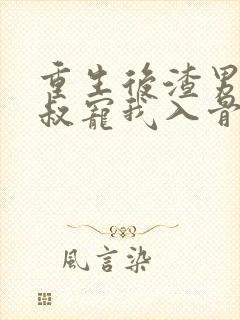 重生後渣男
叔寵我入骨
風言染